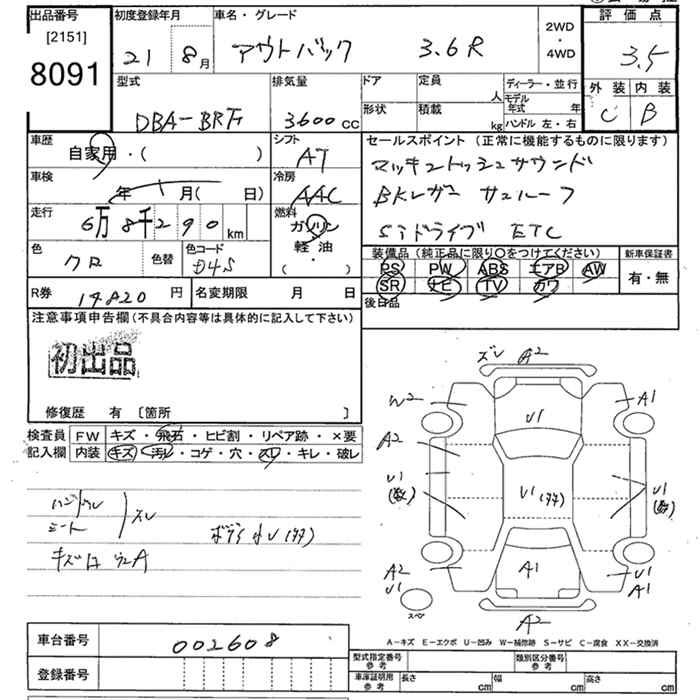 出品番号 初度登録年月 車名・グレード 評価点
[2151]
8091
21 8月 アウトバック 3.6R 2WD・4WD 3.5
型式 排気量 ドア 定員 人 ディーラー・並行 外装 内装
DBA-BR 3600cc 形状 積載 kg モデル年式 年 C B
ハンドル 左・右
車歴 シフト セールスポイント (正常に機能するものに限ります)
自家用・( ) AT マッキントッシュサウンド
車検 冷房 BKレザー サンルーフ
年 月( 日) AAC
走行 燃料 SIドライブ ETC
6万8千290km ガソリン
軽油
( )
色 色替 色コード 装備品 (純正品に限り○をつけてください) 新車保証書
クロ D4S PS PW ABS エアB AW 有・無
SR ナビ TV カワ
R券 19820円 名変期限 月 日 後日品
注意事項申告欄 (不具合内容等は具体的に記入して下さい)
初出品
修復歴 有 [箇所 ]
検査員 FW キズ・飛石・ヒビ割・リペア跡・×要
記入欄 内装 キズ・汚レ・コゲ・穴・スレ・キレ・破レ
ハンドル
シート スレ
ボディ小U(多)
キズ
ズレ A2
W2 A1
U1
A2
U1 (数) U1(多) U1 (数)
A2 A1 U1
U1 A1
スペア
A2
A-キズ E-エクボ U-凹み W-補修跡 S-サビ C-腐食 XX-交換済
車台番号 002608
登録番号
型式指定番号 参考 類別区分番号 参考
車庫証明用 参考 長さ cm 幅 cm 高さ cm